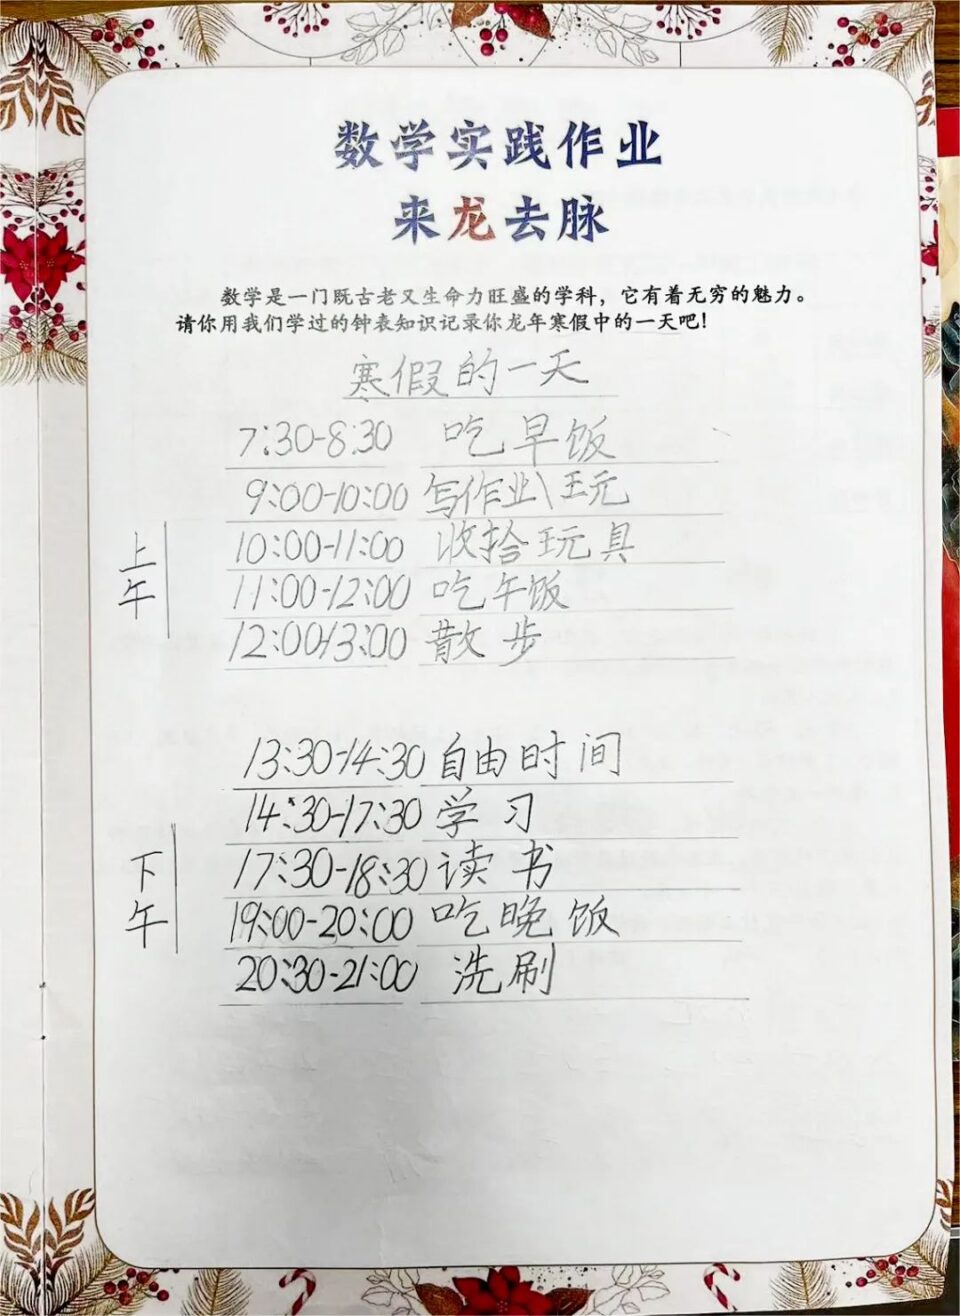 数学实践作业
来龙去脉
数学是一门既古老又生命力旺盛的学科，它有着无穷的魅力。
请你用我们学过的钟表知识记录你龙年寒假中的一天吧！
寒假的一天
7:30-8:30 吃早饭
9:00-10:00 写作业\玩
上午
10:00-11:00 收拾玩具
11:00-12:00 吃午饭
12:00-13:00 散步
13:30-14:30 自由时间
14:30-17:30 学习
下午
17:30-18:30 读书
19:00-20:00 吃晚饭
20:30-21:00 洗刷